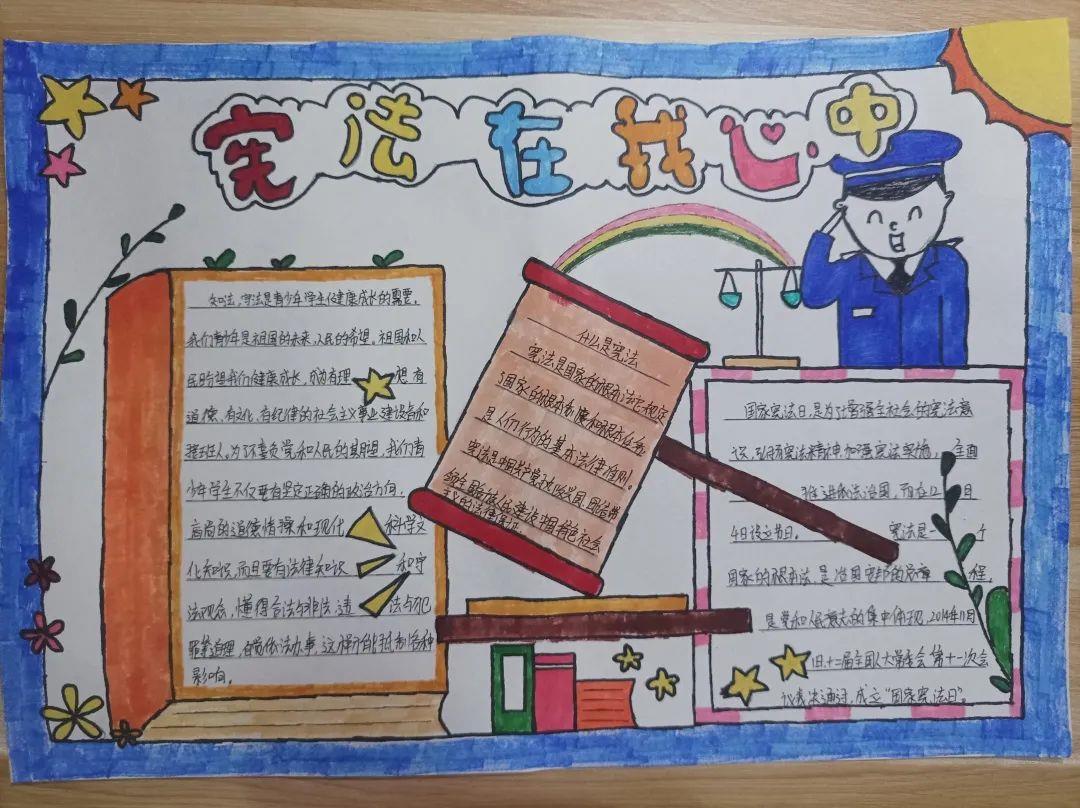 宪法在我心中
知法，守法是青少年学生健康成长的需要，
我们青少年是祖国的未来，人民的希望。祖国和人
民盼望我们健康成长，成为有理想有
道德、有文化、有纪律的社会主义事业建设者和
接班人，为了不辜负党和人民的期望，我们青
少年学生不仅要有坚定正确的政治方向，
高尚的道德情操和现代科学文
化知识，而且要有法律知识和守
法观念，懂得合法与非法、违法与犯
罪等道理，自觉依法办事，这样才能抵制各种
影响。
什么是宪法
宪法是国家的根本法它规定
了国家的根本制度和根本任务
是人们行为的基本法律准则。
宪法是中国共产党执政兴国、团结带
领各族人民建设中国特色社会
主义的法律保证
国家宪法日，是为了增强全社会的宪法意
识，弘扬宪法精神，加强宪法实施，全面
推进依法治国，而在12月
4日设立节日。宪法是一个
国家的根本法，是治国安邦的总章程，
是党和人民意志的集中体现，2014年11月
1日，十二届全国人大常委会第十一次会
议表决通过，成立“国家宪法日”。